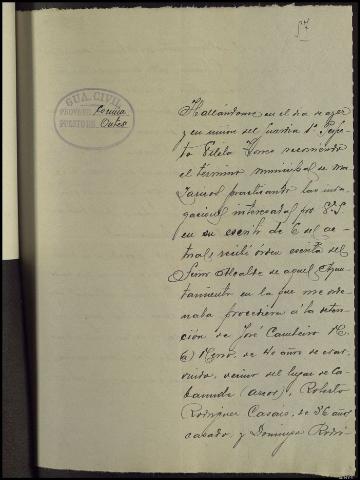 57
GUA. CIVIL
PROVINCIA Coruña
PUESTO DE Outes
Hallándome en el dia de ayer
y en union del Guardia 2º Pepe
to Vilela Tomé recorriendo
el término municipal de Ma
zaricos practicando las inda
gaciones interesadas por V.S.
en su escrito de 6 del ac
tual, recibí órden escrita del
Señor Alcalde de aquel Ayun
tamiento en la que me orde
naba procediera á la deten
ción de José Caudeiro
de 40 años de edad,
vecino del lugar de Ca
(Arcos), Roberto
Rodriguez Casais, de 36 años
casado, y Domingo Rodri